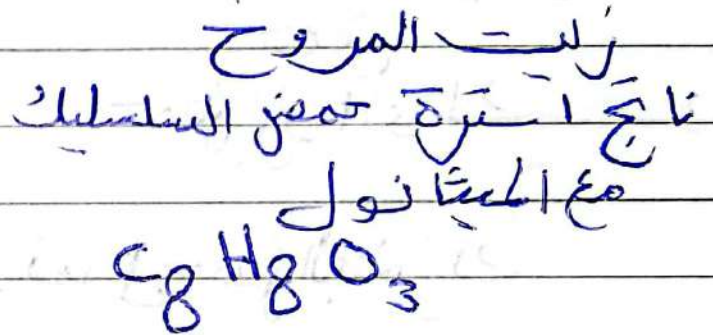 زيت المروح
ناتج أسترة حمض السلسليك
مع الميثانول
C₈H₈O₃